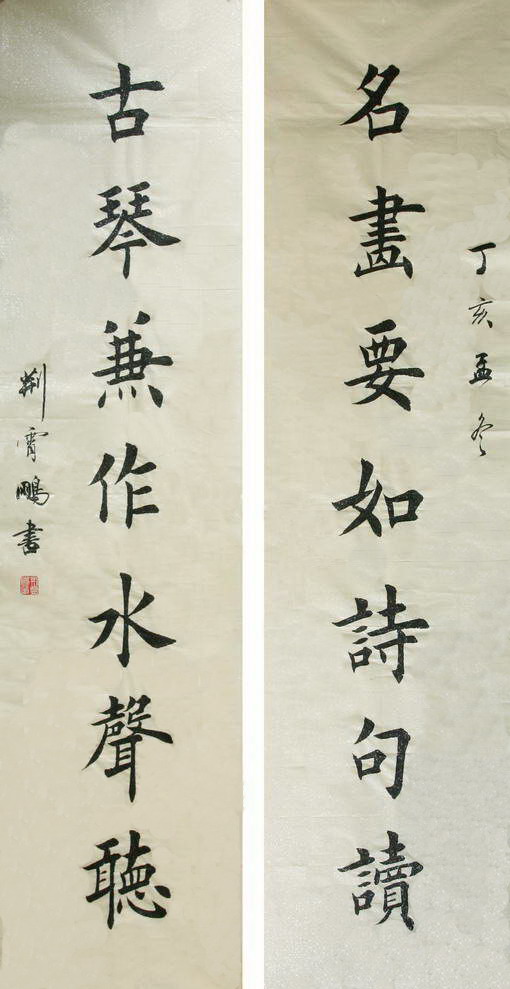 丁亥孟冬
名畫要如詩句讀
古琴兼作水聲聽
荆霄鵬書